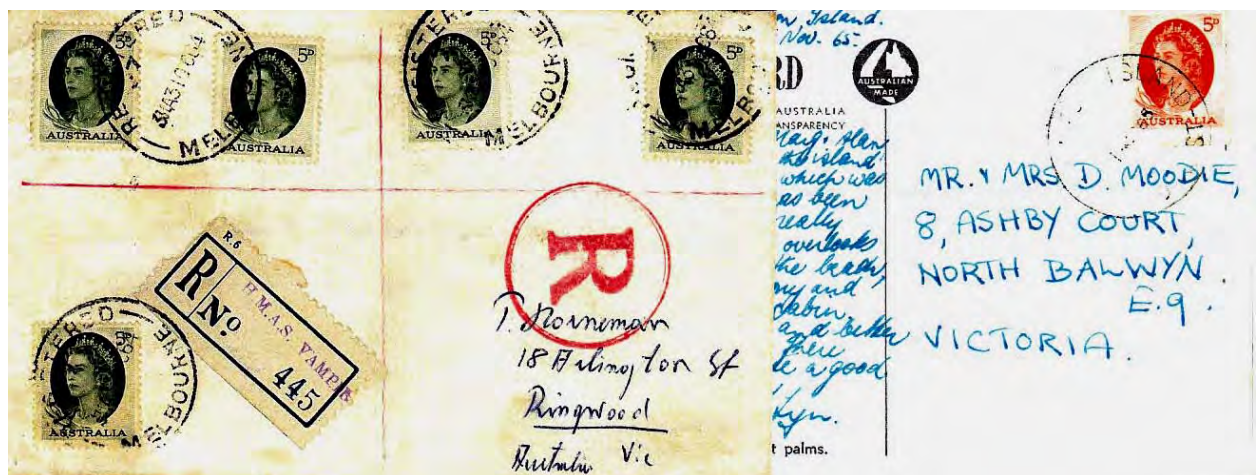 5D
AUSTRALIA
REGISTERED
MELBOURNE
5D
AUSTRALIA
5D
AUSTRALIA
REGISTERED
MELBOURNE
5D
AUSTRALIA
MELBOURNE
R.6
R No
H.M.A.S. VAMPIRE
445
R
5D
AUSTRALIA
REGISTERED
MELBOURNE
T. Horneman
18 Arlington St
Ringwood
Australia Vic
Island.
Nov. 65.
RD
AUSTRALIAN
MADE
AUSTRALIA
ANSPARENCY
the island
which was
as been
really
overlooks
the beach,
and
cabin.
and better
here
a good
palms.
5D
AUSTRALIA
ISLAND
MR. & MRS D. MOODIE,
8, ASHBY COURT,
NORTH BALWYN.
E.9.
VICTORIA.